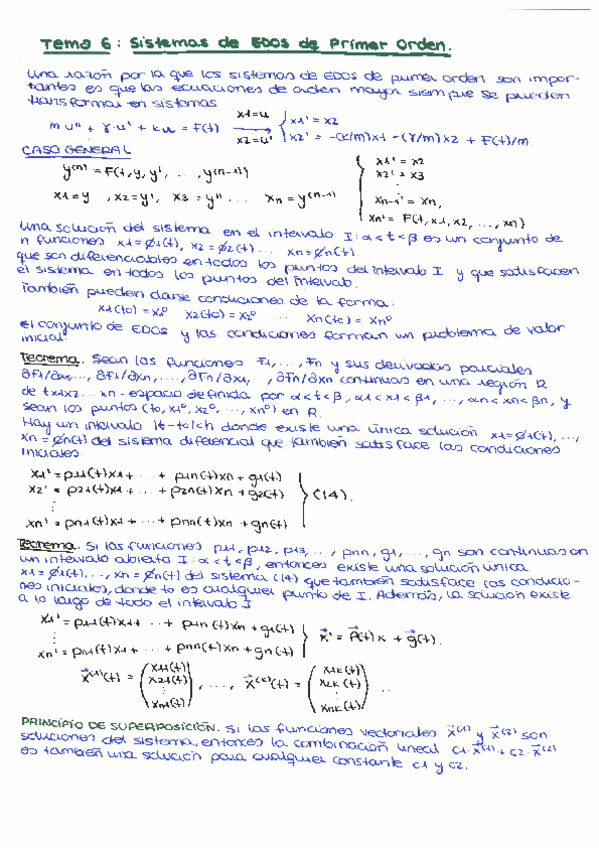 Tema 6: Sistemas de EDOs de Primer Orden.
Una razón por la que los sistemas de EDOS de primer orden son impor-
tantes es que las ecuaciones de orden mayor siempre se pueden
transformar en sistemas
mu'' + γ·u' + ku = F(t) x1=u x2=u' → { x1' = x2
x2' = -(k/m)x1 - (γ/m)x2 + F(t)/m.
CASO GENERAL
y(n) = F(t, y, y', ..., y(n-1))
x1=y, x2=y', x3=y''... xn=y(n-1)
{ x1' = x2
x2' = x3
⋮
xn-1' = xn,
xn' = F(t, x1, x2, ..., xn)
Una solución del sistema en el intervalo I: α<t<β es un conjunto de
n funciones x1=Ø1(t), x2=Ø2(t)... xn=Øn(t).
que son diferenciables en todos los puntos del intervalo I y que satisfacen
el sistema en todos los puntos del intervalo.
También pueden darse condiciones de la forma:
x1(t0)=x1⁰ x2(t0)=x2⁰ ... xn(t0)=xn⁰
el conjunto de EDOS y las condiciones forman un problema de valor
inicial.
Teorema. Sean las funciones F1, ..., Fn y sus derivadas parciales
∂F1/∂x1, ..., ∂F1/∂xn, ..., ∂Fn/∂x1, ..., ∂Fn/∂xn continuas en una región R
de tx1x2... xn-espacio definida por α<t<β, α1<x1<β1, ..., αn<xn<βn, y
sean los puntos (t0, x1⁰, x2⁰, ..., xn⁰) en R.
Hay un intervalo |t-t0|<h donde existe una única solución x1=Ø1(t), ...,
xn=Øn(t) del sistema diferencial que también satisface las condiciones
iniciales.
x1' = p11(t)x1 + ... + p1n(t)xn + g1(t)
x2' = p21(t)x1 + ... + p2n(t)xn + g2(t)
⋮
xn' = pn1(t)x1 + ... + pnn(t)xn + gn(t)
} (14).
Teorema. Si las funciones p11, p12, p13, ..., pnn, g1, ..., gn son continuas en
un intervalo abierto I: α<t<β, entonces existe una solución única
x1=Ø1(t), ..., xn=Øn(t) del sistema (14) que también satisface las condicio-
nes iniciales, donde t0 es cualquier punto de I. Además, la solución existe
a lo largo de todo el intervalo I
x1' = p11(t)x1 + ... + p1n(t)xn + g1(t)
⋮
xn' = pn1(t)x1 + ... + pnn(t)xn + gn(t)
} x⃗' = P⃗(t)x + g⃗(t).
x⃗(1)(t) = (x11(t) x21(t) ⋮ xn1(t)), ..., x⃗(k)(t) = (x1k(t) x2k(t) ⋮ xnk(t)) ..
PRINCIPIO DE SUPERPOSICIÓN. Si las funciones vectoriales x⃗(1) y x⃗(2) son
soluciones del sistema, entonces la combinación lineal c1·x⃗(1) + c2·x⃗(2)
es también una solución para cualquier constante c1 y c2.